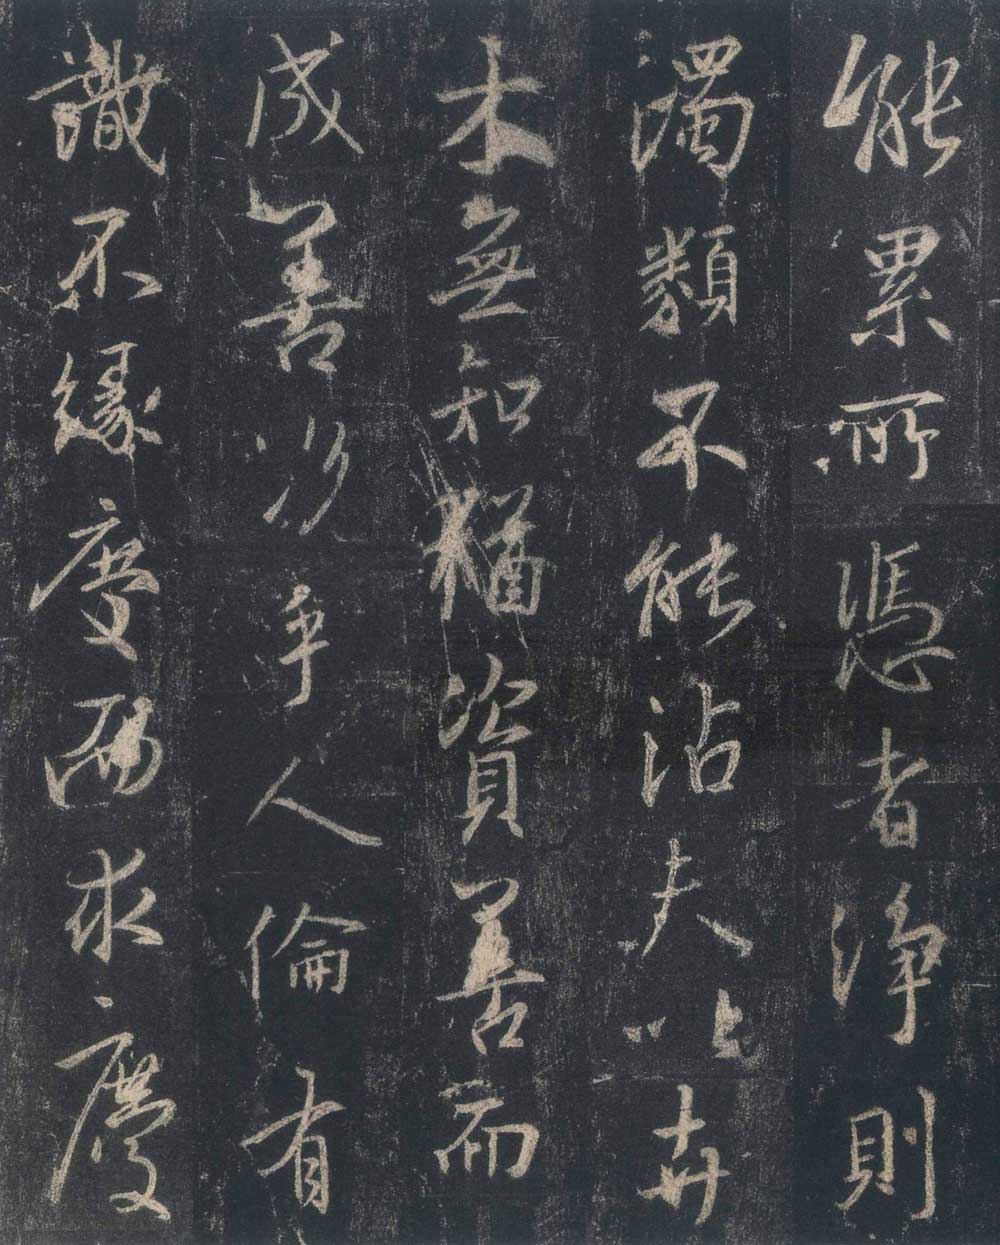 能累所憑者淨則
濁類不能沾夫以卉
木無知猶資善而
成善況乎人倫有
識不緣慶而求慶